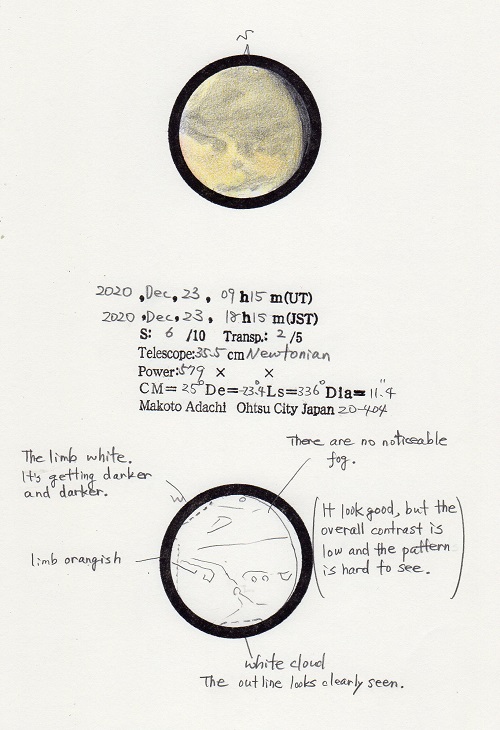 N
2020 , Dec, 23 , 09 h 15 m(UT)
2020 , Dec, 23 , 18 h 15 m(JST)
S: 6 /10 Transp.: 2 /5
Telescope:35.5 cm Newtonian
Power:579 × ×
CM= 25° De=-23.4° Ls=336° Dia= 11.″4
Makoto Adachi Ohtsu City Japan 20-404
There are no noticeable
fog.
The limb white.
It's getting darker
and darker.
W
It look good, but the
overall contrast is
low and the pattern
is hard to see.
limb orangish
white cloud
The outline looks clearly seen.